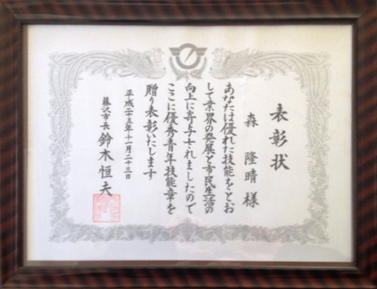 表彰状
森 隆晴 様
あなたは優れた技能をとお
して業界の発展と市民生活の
向上に寄与されましたので
ここに優秀青年技能章を
贈り表彰いたします
平成二十五年十一月二十三日
藤沢市長 鈴木恒夫